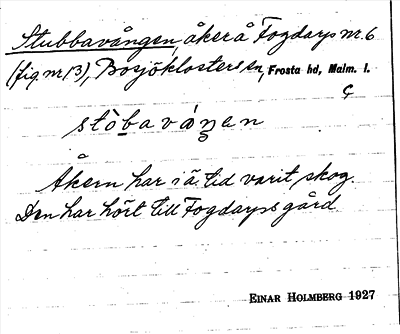 Stubbavången, åker å Fogdarps nr. 6
(fig. nr 13), Bosjöklosters sn, Frosta hd, Malm. l.
ç
stòbaváŋen
Åkern har i ä. tid varit skog.
Den har hört till Fogdarps gård.
EINAR HOLMBERG 1927